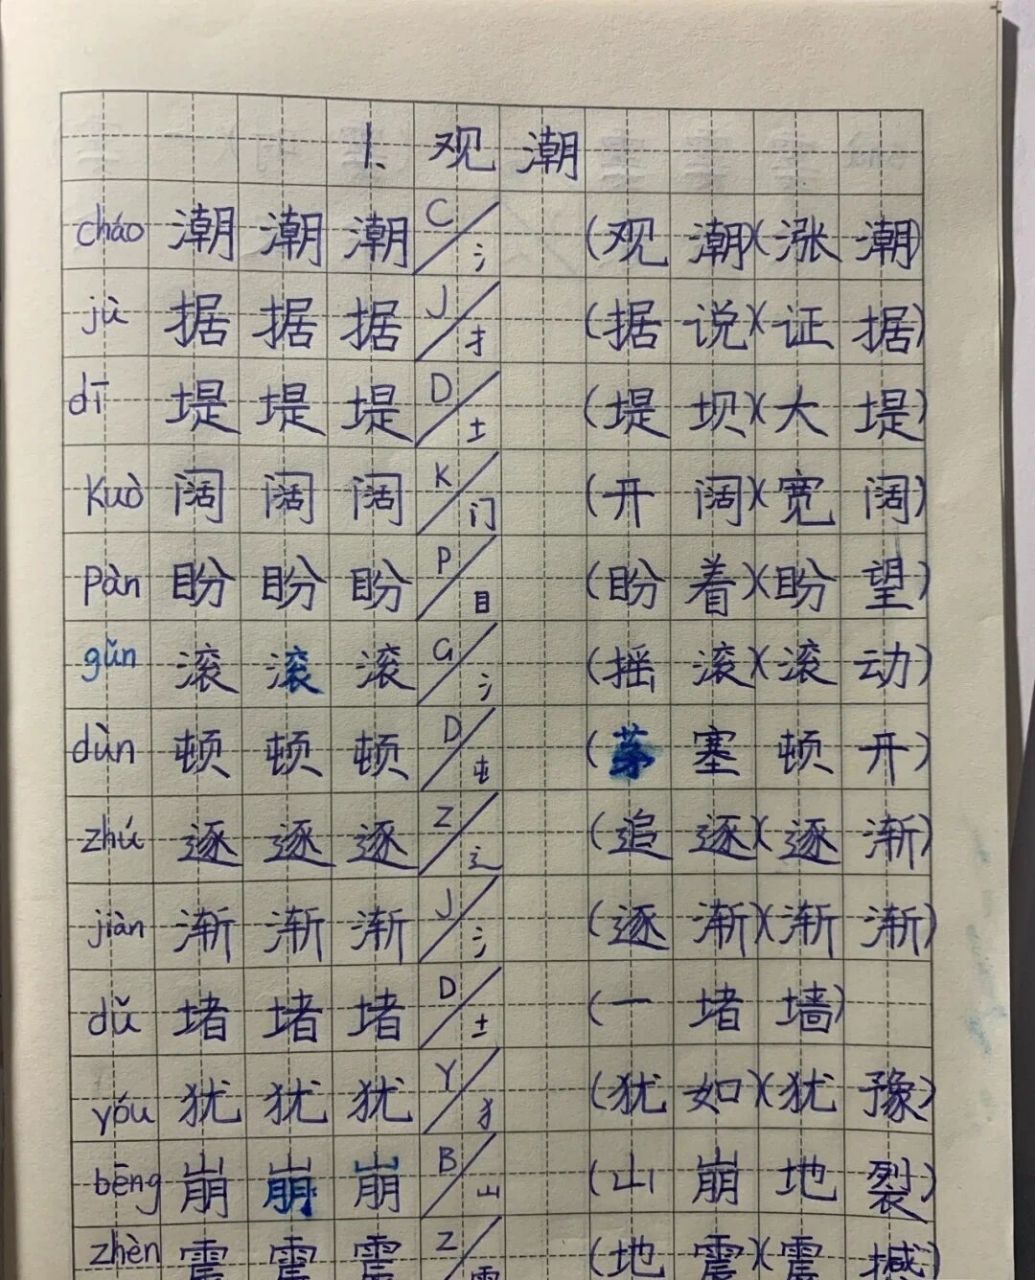 1. 观潮
cháo 潮 潮 潮 C/氵 (观潮)(涨潮)
jù 据 据 据 J/扌 (据说)(证据)
dī 堤 堤 堤 D/土 (堤坝)(大堤)
Kuò 阔 阔 阔 K/门 (开阔)(宽阔)
Pàn 盼 盼 盼 P/目 (盼着)(盼望)
gǔn 滚 滚 滚 G/氵 (摇滚)(滚动)
dùn 顿 顿 顿 D/屯 (茅塞顿开)
zhú 逐 逐 逐 Z/辶 (追逐)(逐渐)
jiàn 渐 渐 渐 J/氵 (逐渐)(渐渐)
dǔ 堵 堵 堵 D/土 (一堵墙)
yóu 犹 犹 犹 Y/犭 (犹如)(犹豫)
bēng 崩 崩 崩 B/山 (山崩地裂)
zhèn 震 震 震 Z/雷 (地震)(震撼)